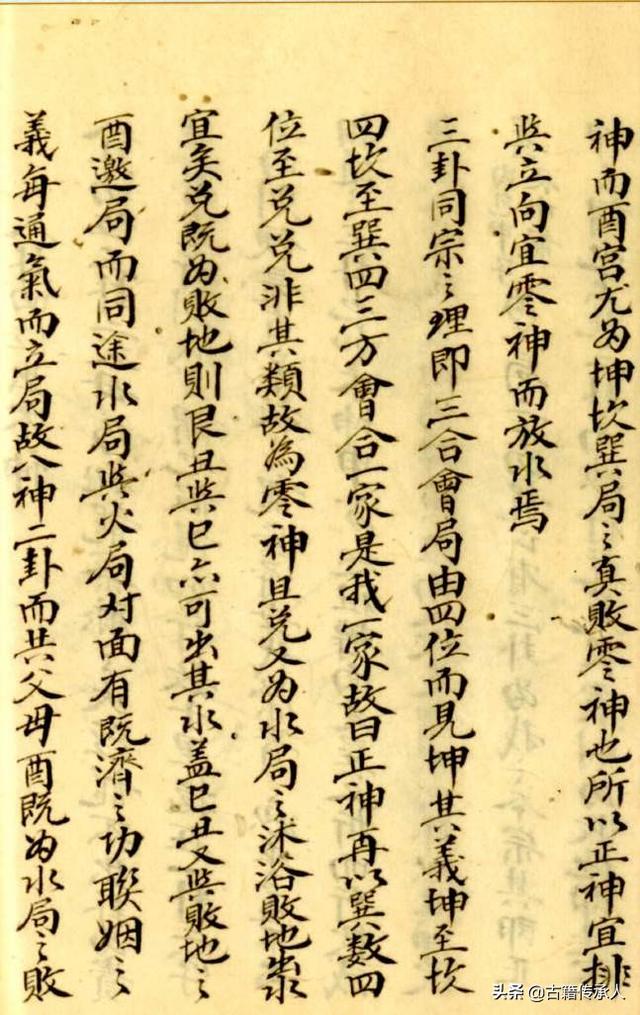 神而酉宫尤为坤坎巽局之真敗零神也所以正神宜排
㒷立向宜零神而放水焉
三卦同宗之理即三合會局由四位而見坤其義坤至坎
四坎至巽四三方會合一家是我一家故曰正神再以巽数四
位至兑兑非其類故為零神且兑又为水局之沐浴敗地出水
宜矣兑既为敗地則艮丑與巳亦可出其水盖巳丑又與敗地之
酉邀局而同途水局與火局对面有既濟之功聯姻之
義每通氣而立局故八神二卦而共父母酉既为水局之敗
头条 @古籍传承人